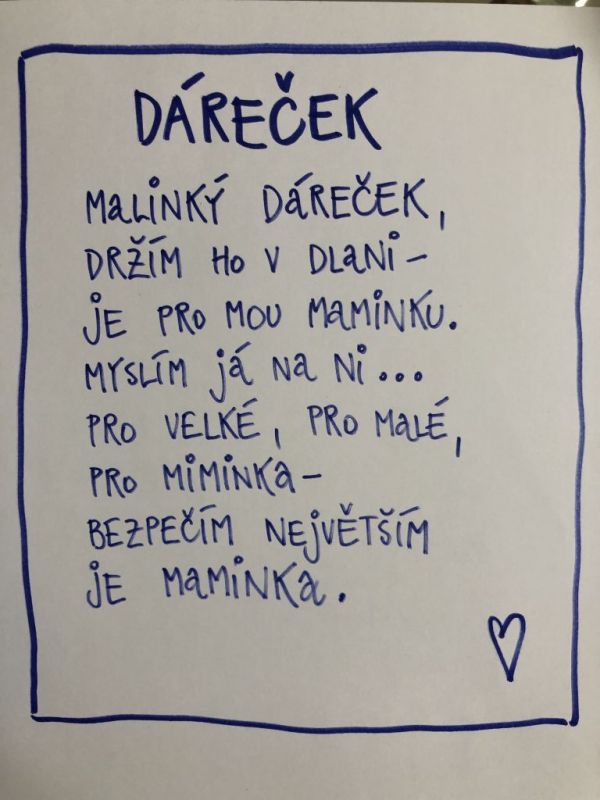 DÁREČEK
MALINKÝ DÁREČEK,
DRŽÍM HO V DLANI –
JE PRO MOU MAMINKU.
MYSLÍM JÁ NA NI...
PRO VELKÉ, PRO MALÉ,
PRO MIMINKA –
BEZPEČÍM NEJVĚTŠÍM
JE MAMINKA.